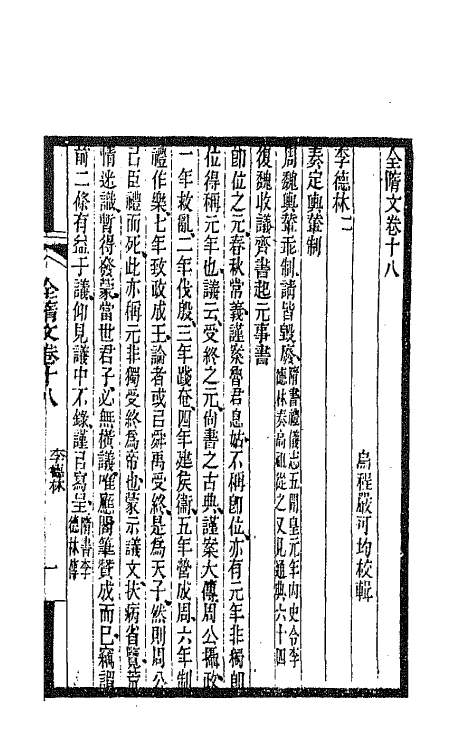 全隋文卷十八
烏程嚴可均校輯
李德林二
奏定輿輦制
周魏輿輦乖制請皆毀廢隋書禮儀志五開皇元年內史令李德林奏高祖從之又見通典六十四
復魏收議齊書起元事書
卽位之元春秋常義謹案魯君息姑不稱卽位亦有元年非獨卽
位得稱元年也議云受終之元尚書之古典謹案大傳周公攝政
一年救亂二年伐殷三年踐奄四年建矦衞五年營成周六年制
禮作樂七年致政成王論者或㠯舜禹受終是爲天子然則周公
㠯臣禮而死此亦稱元非獨受終爲帝也蒙示議文扶病省覽荒
情迷識暫得發蒙當世君子必無橫議唯應閣筆贊成而已竊謂
前二條有益于議仰見議中不錄謹㠯寫呈隋書李德林傳
全隋文卷十八
李德林
一